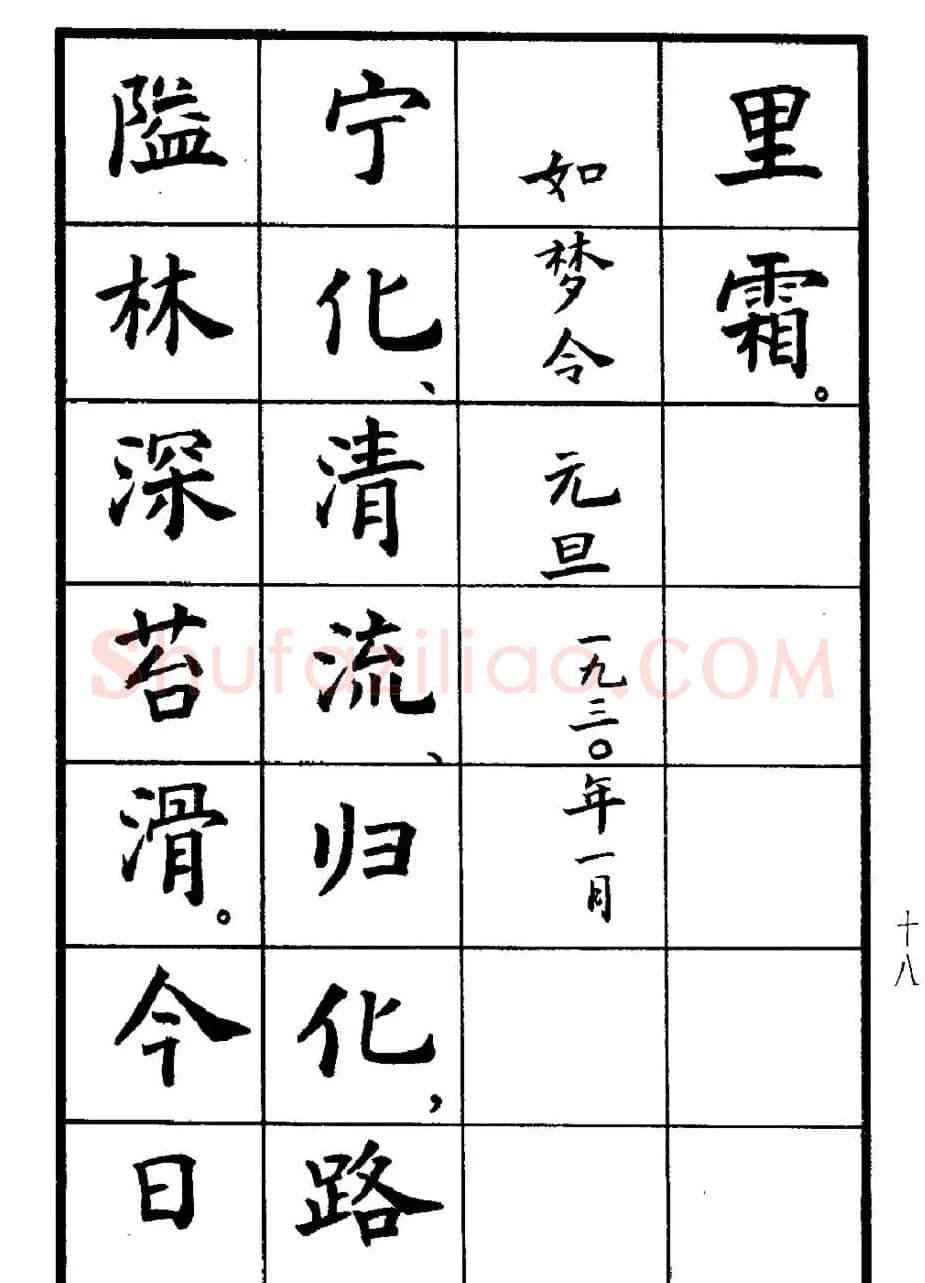 里霜。
如梦令 元旦 一九三〇年一月
宁化、清流、归化,路
隘林深苔滑。今日
十八
Shufaziliao.COM